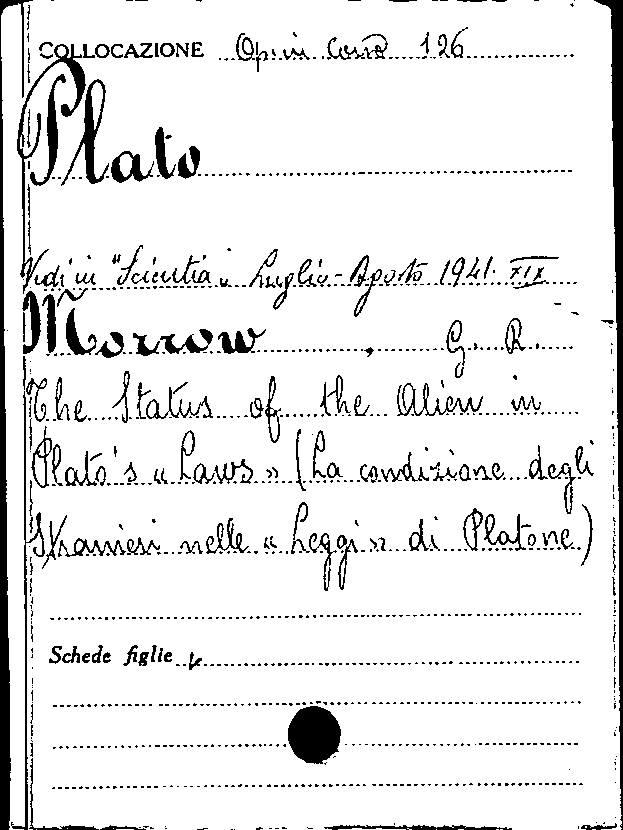 COLLOCAZIONE Op. in corso 126
Plato
Vedi in "Scientia" Luglio-Agosto 1941. XIX
Morrow , G. R.
The Status of the Alien in
Plato's « Laws » (La condizione degli
Stranieri nelle « Leggi » di Platone)
Schede figlie